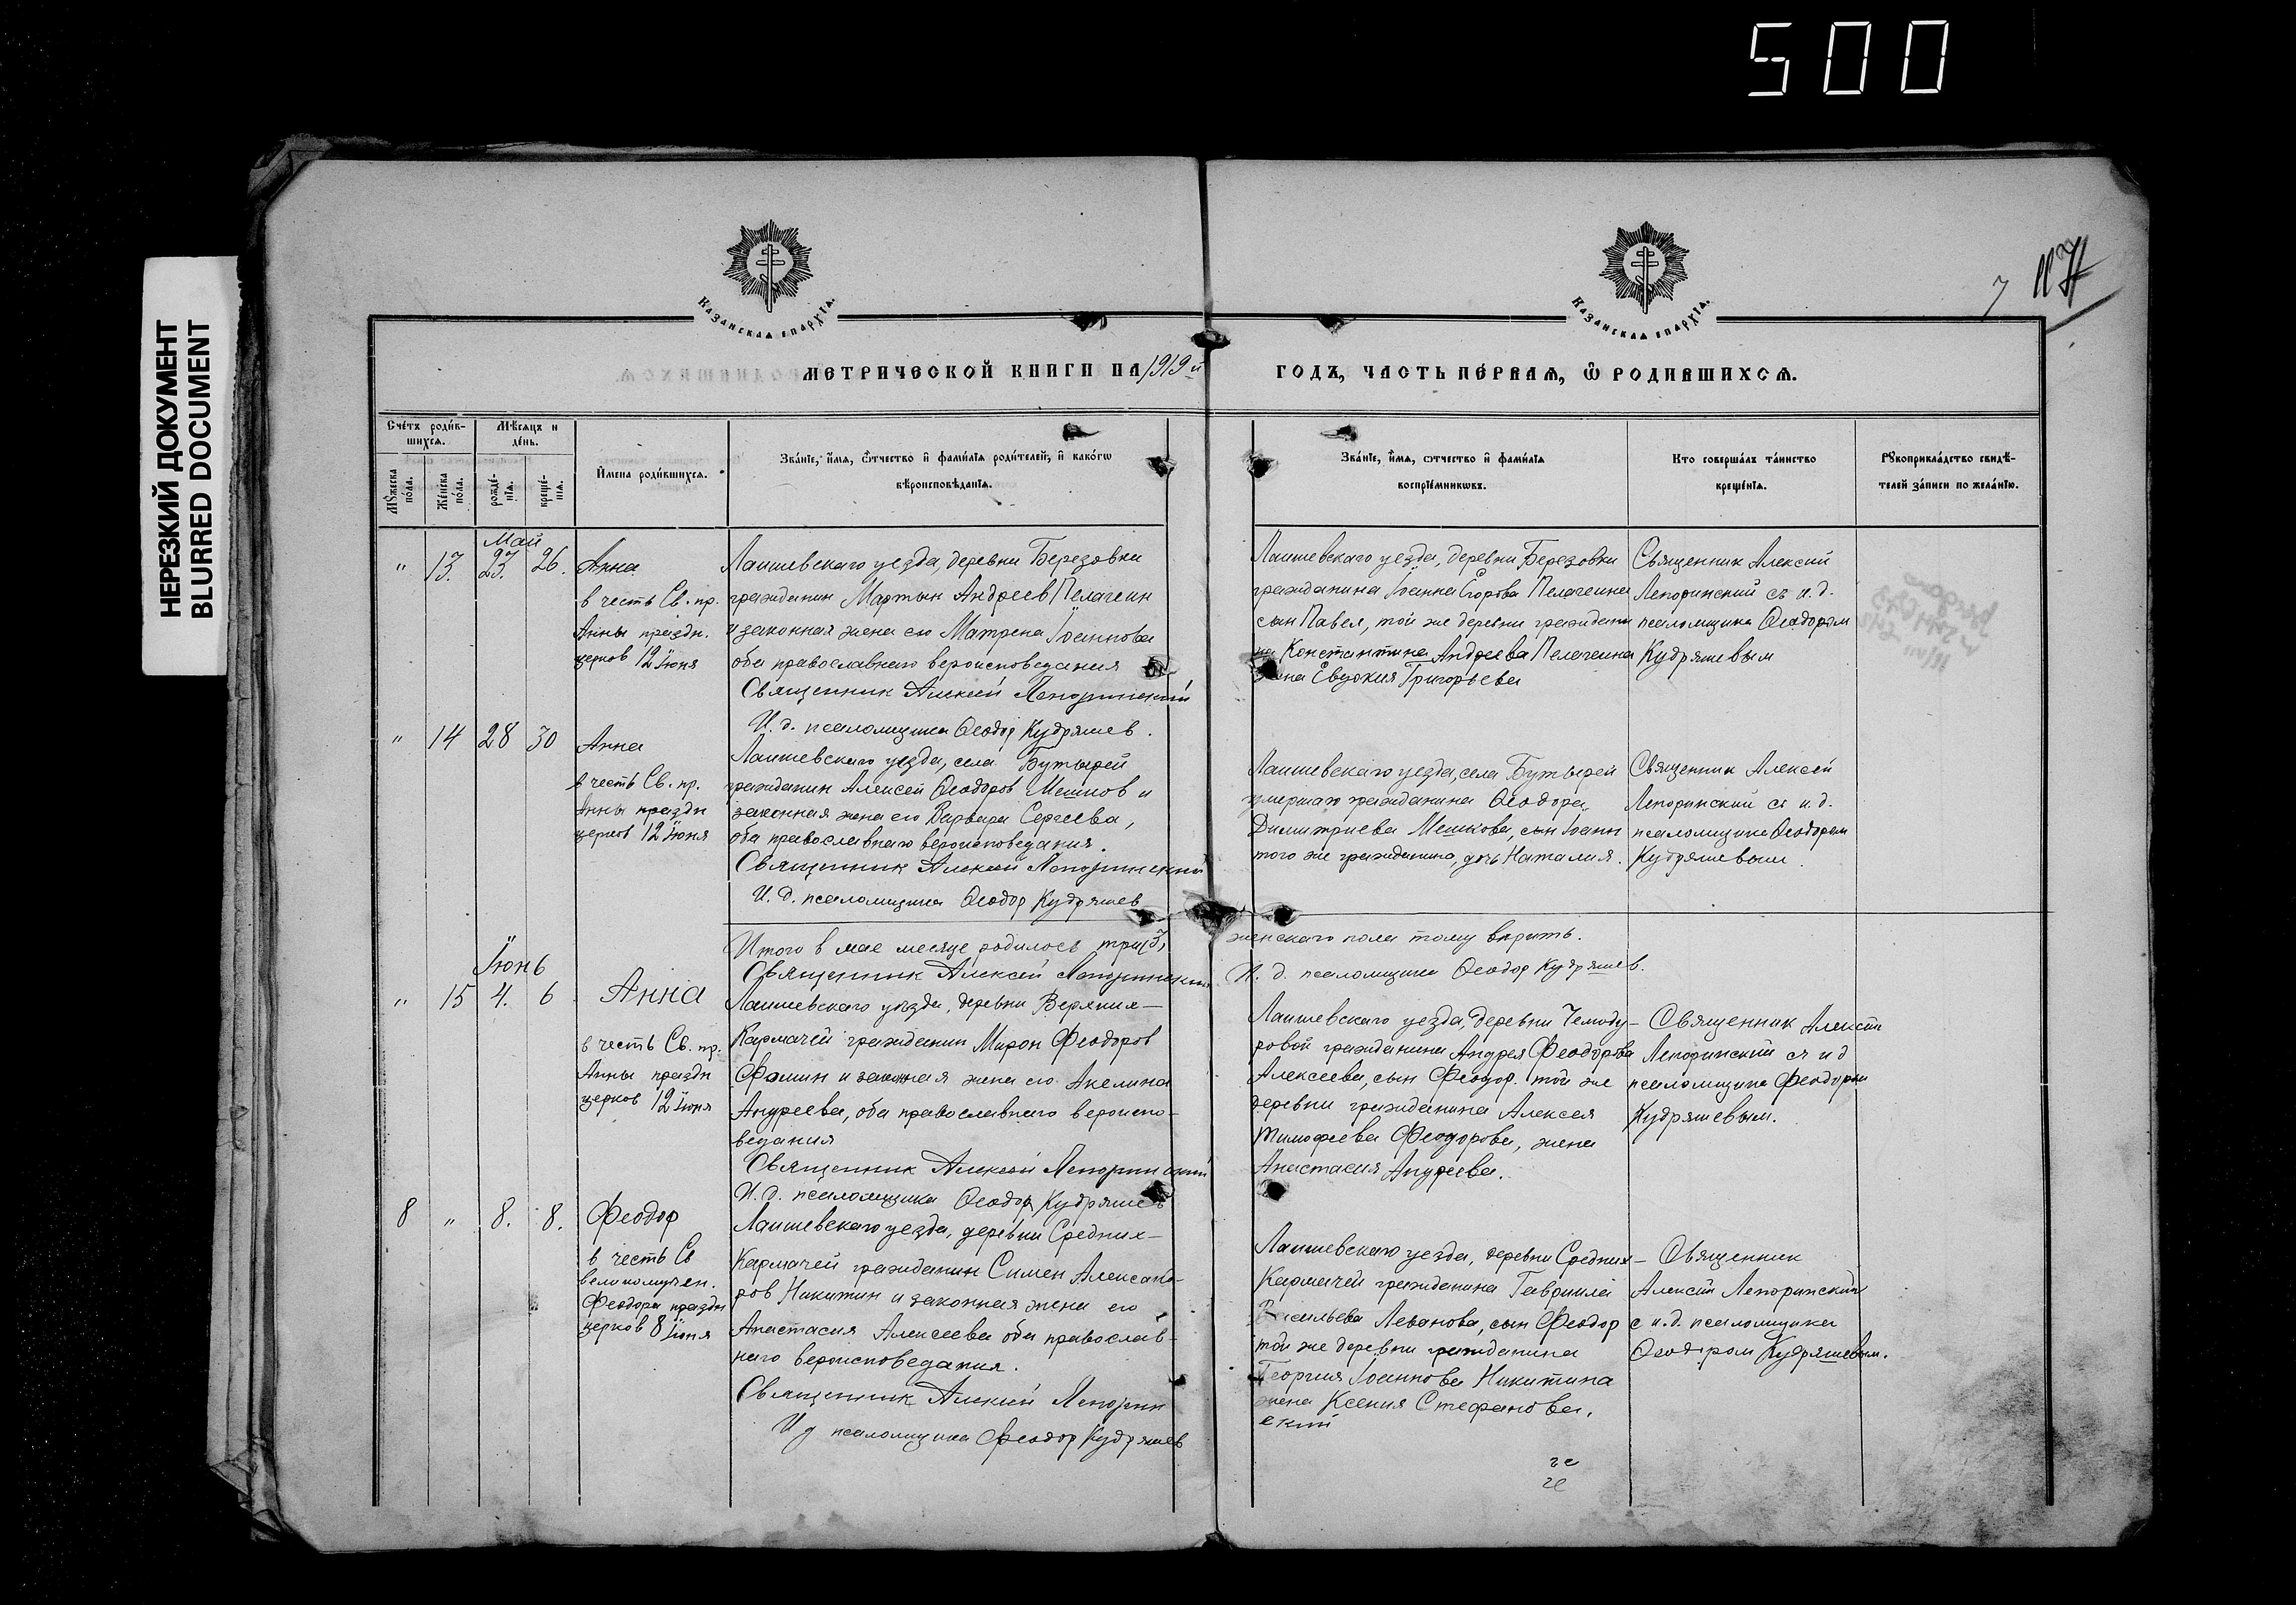 500
НЕРЕЗКИЙ ДОКУМЕНТ
BLURRED DOCUMENT
7
117
КАЗАНСКАѦ ЕПАРХЇѦ.
КАЗАНСКАѦ ЕПАРХЇѦ.
МЕТРИЧЕСКОЙ КНИГИ НА 1919 й
ГОДЪ, ЧАСТЬ ПЕ́РВАѦ, Ѡ РОДИВШИХСѦ.
Сче́тъ роди́в-
шихсѧ.
Мѣ́сѧцъ и
де́нь.
Мꙋжеска
по́ла.
Же́нска
по́ла.
рожде́-
нїѧ.
креще́-
нїѧ.
И҆мена роди́вшихсѧ.
Зва́нїе, и҆́мѧ, ѻ҆́тчество и҆ фами́лїѧ роди́телей, и҆ како́гѡ
вѣроисповѣ́данїѧ.
Зва́нїе, и҆́мѧ, ѻ҆тчество и҆ фами́лїѧ
воспрїе́мникѡвъ.
Кто соверша́лъ та́инство
креще́нїѧ.
Рꙋкоприкла́дство свидѣ́-
телей за́писи по жела́нїю.
Май
" 13. 23. 26. Анна
в честь Св. пр.
Анны праздн.
церков 12 Iюня
Лаишевскаго уезда, деревни Березовки
гражданин Мартын Андреев Пелагеин
и законная жена его Матрена Iоаннова
оба православнаго вероисповедания
Священник Алексий Лепоринский
И. д. псаломщика Ѳеодор Кудряшев.
Лаишевскаго уезда, деревни Березовки
гражданина Iоанна Егорова Пелагеина
сын Павел, той же деревни граждани
на Константина Андреева Пелагеина
жена Евдокия Григорьева
Священник Алексий
Лепоринский съ и. д.
псаломщика Ѳеодором
Кудряшевым
" 14 28 30 Анна
в честь Св. пр.
Анны праздн
церков 12 Iюня
Лаишевскаго уезда, села Бутырей
гражданин Алексей Ѳеодоров Мешков и
законная жена его Варвара Сергеева,
оба православнаго вероисповедания.
Священник Алексий Лепоринский
И. д. псаломщика Ѳеодор Кудряшев
Лаишевскаго уезда, села Бутырей
умершаго гражданина Ѳеодора
Димитриева Мешкова, сын Iоанн
того же гражданина, дочь Наталия.
Священник Алексей
Лепоринский съ и. д.
псаломщика Ѳеодором
Кудряшевым.
Итого в мае месяце родилось три (3)
женскаго пола тому верить.
Священник Алексей Лепоринский
И. д. псаломщика Ѳеодор Кудряшев.
Iюнь
" 15 4. 6 Анна
в честь Св. пр.
Анны праздн
церков 12 Iюня
Лаишевскаго уезда, деревни Верхних-
Кармачей гражданин Мирон Феодоров
Фомин и законная жена его Акелина
Андреева, оба православнаго вероиспо-
ведания
Священник Алексий Лепоринский
И. д. псаломщика Ѳеодор Кудряшев
Лаишевскаго уезда, деревни Чемоду-
ровой гражданина Андрея Феодорова
Алексеева, сын Феодор. той же
деревни гражданина Алексея
Тимофеева Феодорова, жена
Анастасия Андреева.
Священник Алексей
Лепоринский съ и д
псаломщика Феодором
Кудряшевым.
8 " 8. 8. Феодор
в честь Св
великомучен.
Феодора праздн
церков 8 Iюня
Лаишевскаго уезда, деревни Средних-
Кармачей гражданин Симен Александ-
ров Никитин и законная жена его
Анастасия Алексеева оба православ-
наго вероисповедания.
Священник Алексий Лепорин
И д псаломщика Феодор Кудряшев
Лаишевскаго уезда, деревни Средних-
Кармачей гражданина Гавриила
Васильева Леванова, сын Феодор
той же деревни гражданина
Георгия Iоаннова Никитина
жена Ксения Стефанова.
ский
Священник
Алексий Лепоринский
с и.д. псаломщика
Ѳеодором Кудряшевым.